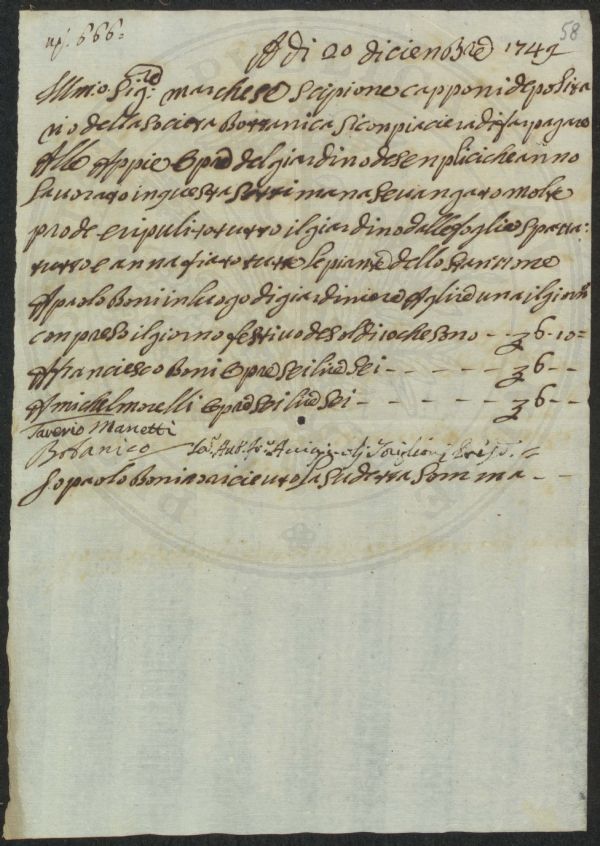 58
n.º 666=
A di 20 diciembre 1749
Illmo. Sig:re marchese Scipione capponi deposita
rio della Societa Bottanica Si conpiaciera di far pagare
Alle Appie Opre del giardino de senplici che anno
lavorato in questa settimana se vangato molte
prode e ripulito tutto il giardino dalle foglie spazza:
tutto e annafiato tutte le piante dello stanzone
A paolo Boni in luogo di giardiniere A lire una il giorno
conpreso il giorno festivo de soldi 10 che sono - - 6-10=
A franciesco Boni Opre sei lire sei - - - - - - 6 - -
A michel morelli opre sei lire sei - - - - - - 6 - -
Saverio Manetti
Botanico
Io paolo Boni o riceuto la sudetta somma - -